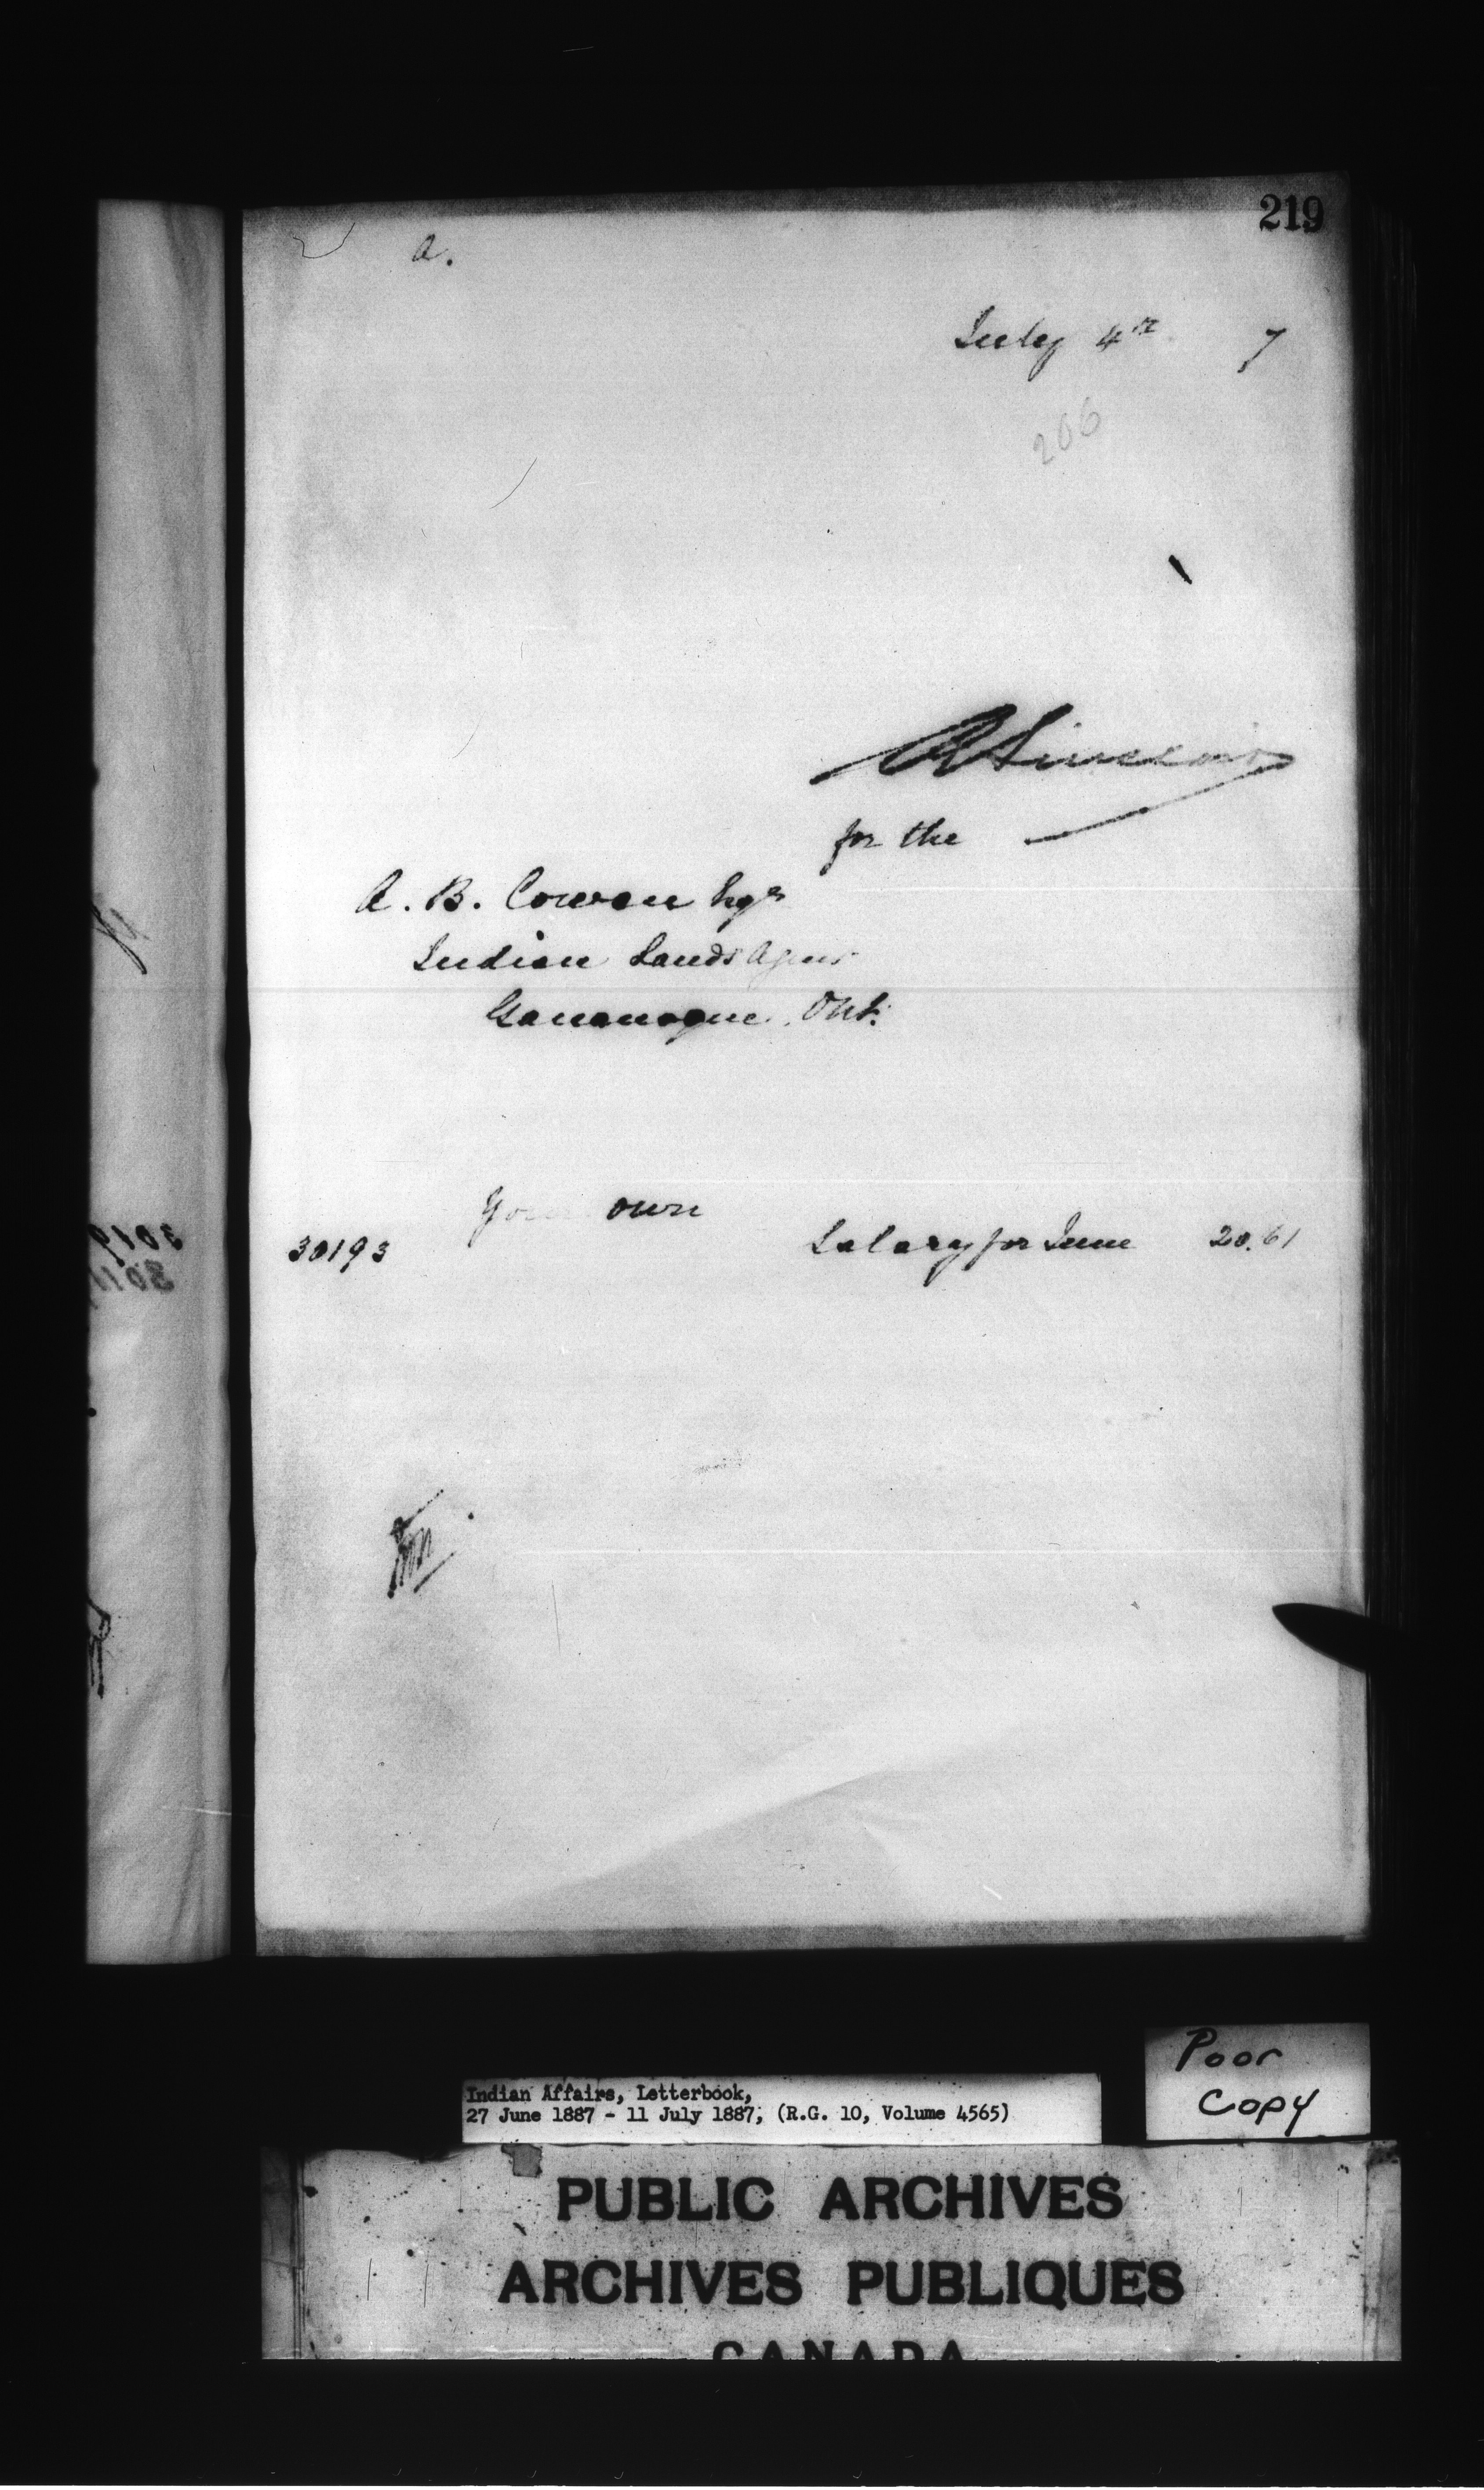 219
a.
July 4th 7
206
R Sinclair
for the
A. B. Cowan Esqr
Indian Lands Agent
Gananoque. Ont.
Your own
30193 Salary for June 20.61
Indian Affairs, Letterbook,
27 June 1887 - 11 July 1887, (R.G. 10, Volume 4565)
Poor
Copy
PUBLIC ARCHIVES
ARCHIVES PUBLIQUES
CANADA